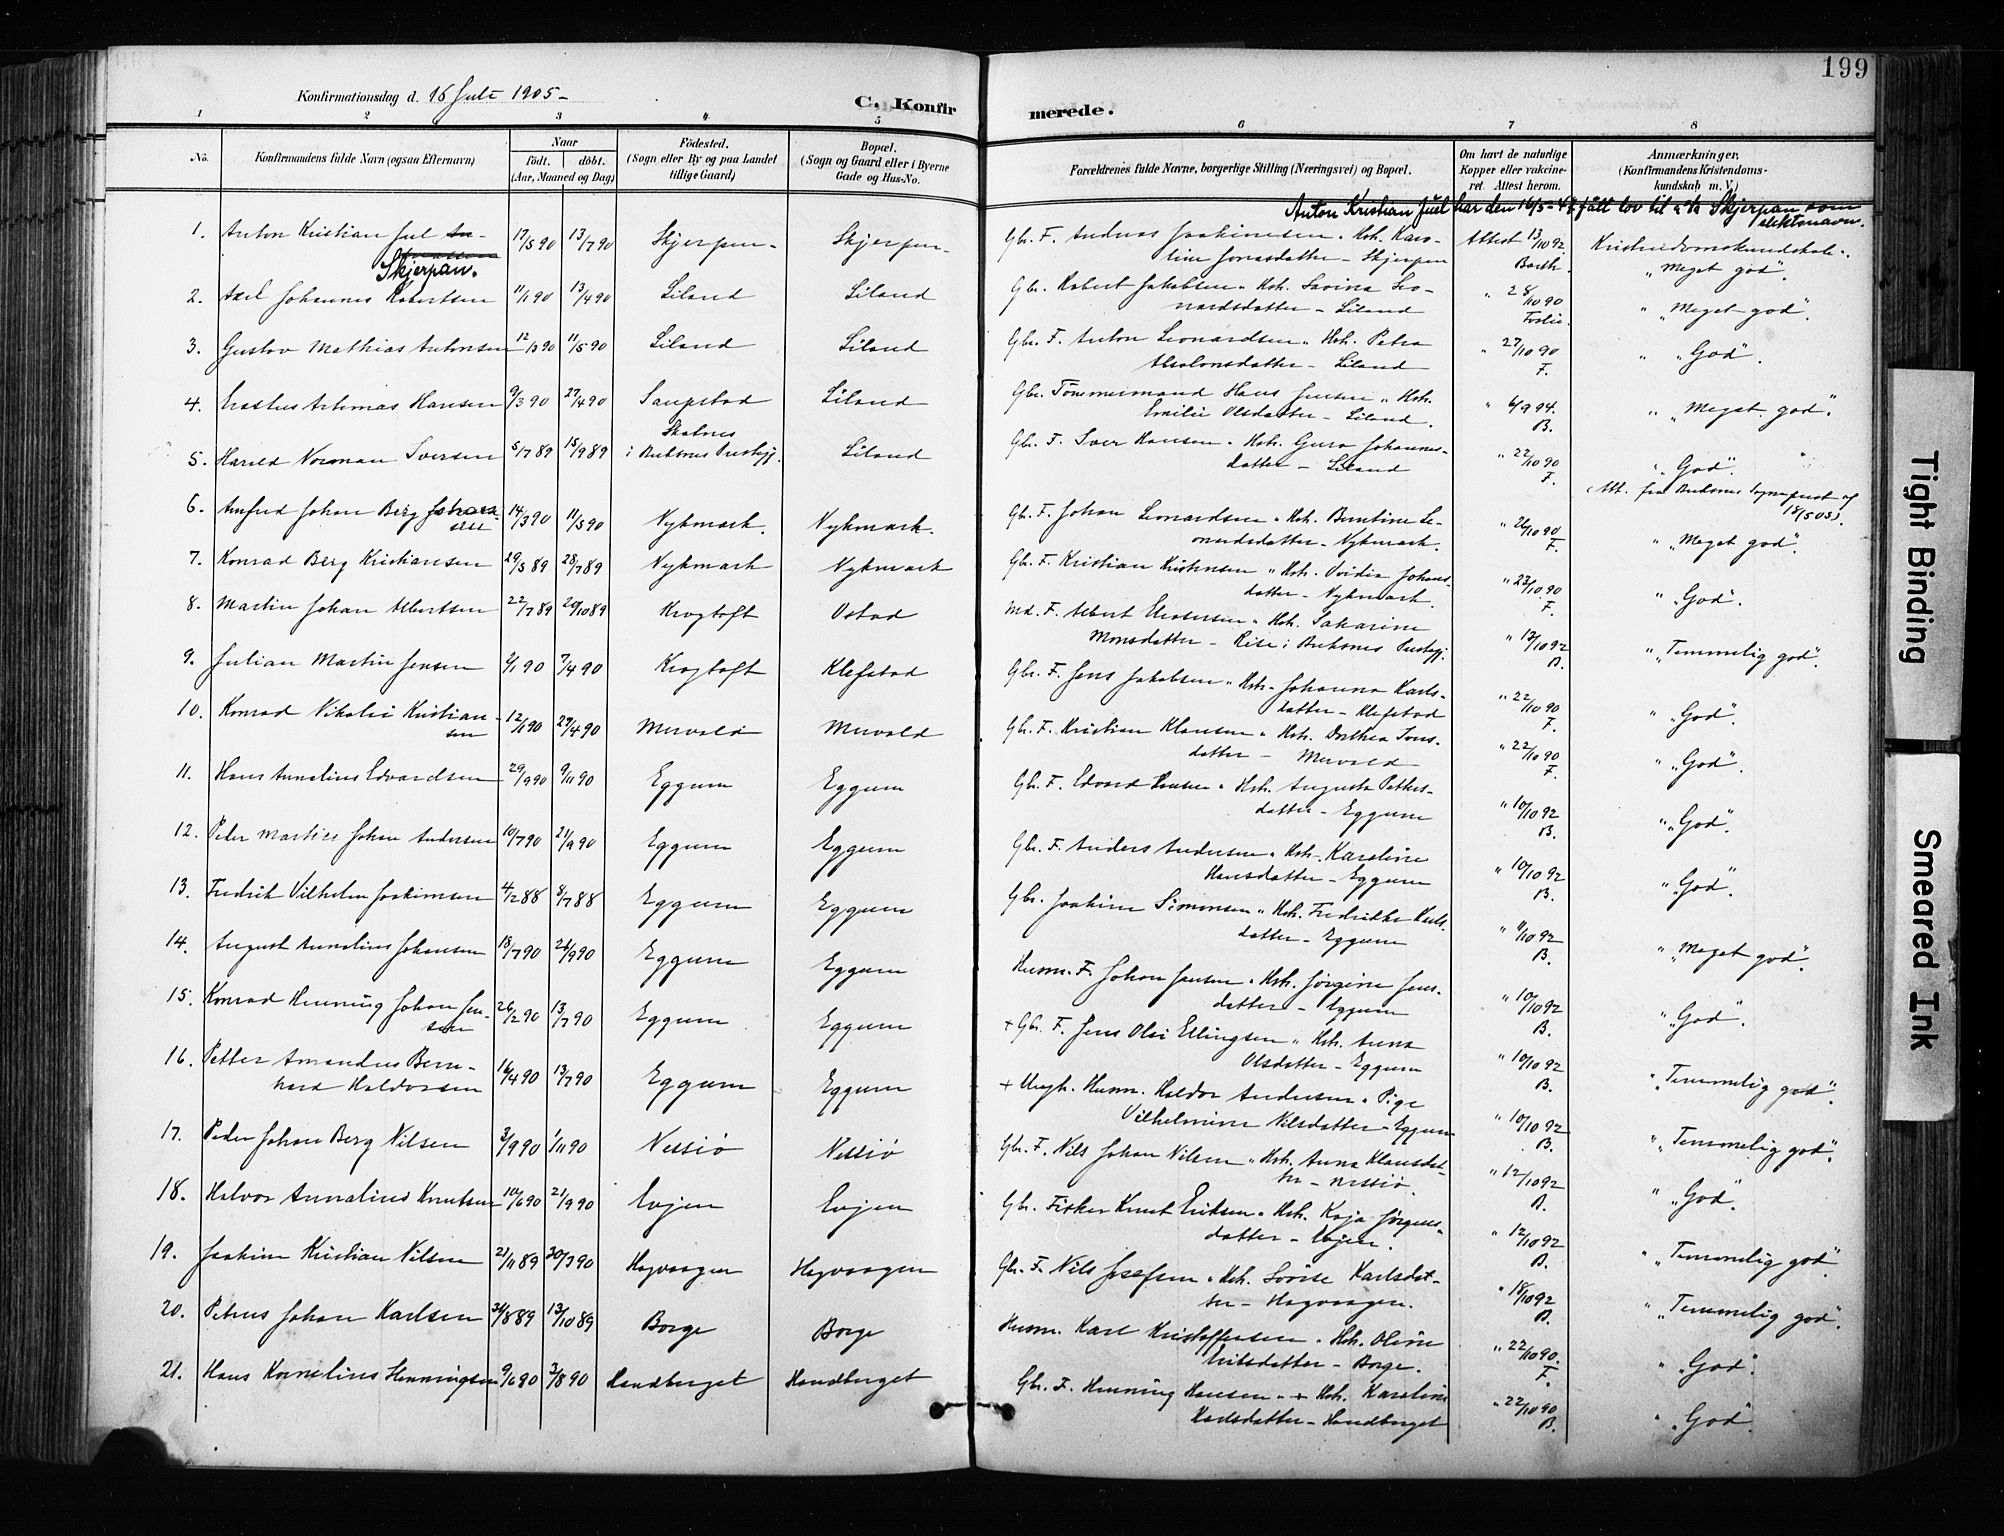 199
Konfirmationsdag d. 16 Juli 1905 -
C. Konfirmerede.
1 2 3 4 5 6 7 8
No.
Konfirmandens fulde Navn (ogsaa Efternavn)
Naar
født. døbt.
(Aar, Maaned og Dag)
Fødested.
(Sogn eller By og paa Landet
tillige Gaard)
Bopæl.
(Sogn og Gaard eller i Byerne
Gade og Hus-No.
Forældrenes fulde Navne, borgerlige Stilling (Næringsvei) og Bopæl.
Om havt de naturlige
Kopper eller vakcine-
ret. Attest herom.
Anmærkninger.
(Konfirmandens Kristendoms-
kundskab m. V.)
Anton Kristian Juel har den 16/5-47 fått lov til å ta Skjerpan som
slektsnavn.
1. Anton Kristian Jul 17/5 90 13/7 90 Skjerpen - Skjerpen - Gbr. F. Andreas Joakimsen o. Hst. Karo- Attest 13/10 92 Kristendomskundskab
Skjerpan. line Jonasdatter - Skjerpen Barth. „Meget god”.
2. Axel Johannes Robertsen 11/1 90 13/4 90 Liland Liland Gbr. Robert Jakobsen o. Hst. Lovina Leo- " 28/10 90 " „Meget god”.
nardsdatter - Liland Foslie.
3. Gustav Mathias Antonsen 12/3 90 11/5 90 Liland Liland Gbr. F. Anton Leonardsen o. Hst. Petra " 27/10 90 " „God”.
Absalonsdatter - Liland F.
4. Erastus Artemas Hansen 9/3 90 27/4 90 Saupstad Liland Gbr. Tømmermand Hans Jensen o. Hst. " 6/9 94. " „Meget god”.
Emilie Olsdatter - Liland. B.
5. Harald Norman Iversen 5/7 89 15/9 89 Skatnes Liland Gbr. F. Iver Hansen o. Hst. Gura Johannes- " 22/10 90 „God”.
i Buksnes Prestegj. datter - Liland F. Att. fra Buksnes Sogneprest af
18/5 05.
6. Anfred Johan Berg Johan- 14/3 90 11/5 90 Nykmark. Nykmark. Gbr. F. Johan Leonardsen o. Hst. Berntine Le- " 26/10 90 " „Meget god”.
sen onardsdatter - Nykmark. F.
7. Konrad Berg Kristiansen 29/5 89 28/7 89 Nykmark Nykmark Gbr. F. Kristian Kristensen o. Hst. Ovidia Johans- " 23/10 90 " „God”.
datter - Nykmark. F.
8. Martin Johan Albertsen 22/7 89 20/10 89 Krogtoft Ostad Md. F. Albert o. Hst. Sakarine " 13/10 92 " „Temmelig god”.
Monsdatter - Rise i Buksnes Prestegj. B.
9. Julian Martin Jensen 2/1 90 7/4 90 Krogtoft Klefstad Gbr. F. Jens Jakobsen o. Hst. Johanna Karls- " 22/10 90 " „God”.
datter - Klefstad F.
10. Konrad Nikolai Kristian- 12/1 90 27/4 90 Mervold Mervold Gbr. F. Kristian Klausen o. Hst. Dorthea Tons- " 22/10 90 " „God”.
sen datter - Mervold F.
11. Hans Annelius Edvardsen 29/9 90 9/11 90 Eggum Eggum Gbr. F. Edvard Hansen o. Hst. Augusta Petters- " 10/10 92 " „God”.
datter - Eggum B.
12. Peder Martin Johan Andersen 10/7 90 21/9 90 Eggum Eggum Gbr. F. Anders Andersen o. Hst. Karoline " 10/10 92 " „God”.
Hansdatter - Eggum B.
13. Fredrik Vilhelm Joakimsen 4/2 88 8/7 88 Eggum Eggum Gbr. Joakim Simonsen o. Hst. Fredrikke Karls- " 11/10 92 " „Meget god”.
datter - Eggum B.
14. August Annelius Johansen 18/7 90 26/9 90 Eggum Eggum Husm. F. Johan Jensen o. Hst. Jørgine Jens- " 10/10 92 " „God”.
datter - Eggum B.
15. Konrad Henning Johan Jen- 26/2 90 13/7 90 Eggum Eggum + Gbr. F. Jens Olai Ellingsen o. Hst. Anna " 10/10 92 „Temmelig god”.
sen Olsdatter - Eggum B.
16. Petter Amandus Bern- 16/4 90 13/7 90 Eggum Eggum + Ungk. Husm. Haldor Andersen o. Pige " 10/10 92 „Temmelig god”.
hard Haldorsen Vilhelmine Nilsdatter - Eggum B.
17. Peder Johan Berg Nilsen 3/9 90 1/11 90 Nessiø Nessiø Gbr. F. Nils Johan Nilsen o. Hst. Anna Klausdat- " 12/10 92 " „God”.
ter - Nessiø. B.
18. Halvor Annalius Knutsen 10/6 90 21/9 90 Evjen Evjen Gbr. Fisker Knut Eriksen o. Hst. Kaja Jørgens- " 12/10 92 " „Temmelig god”.
datter - Evjen. B.
19. Joakim Kristian Nilsen 21/11 89 30/3 90 Hagvaagen Hagvaagen Gbr. F. Nils Josefsen o. Hst. Lovise Karlsdat- " 18/10 92 " „Temmelig god”.
ter - Hagvaagen. B.
20. Petrus Johan Karlsen 31/8 89 13/10 89 Borge Borge Husm. Karl Kristoffersen o. Hst. Oline " 22/10 90. " „God”.
Nilsdatter - Borge. F.
21. Hans Kornelius Henningsen 9/6 90 3/8 90 Handberget Handberget Gbr. F. Henning Hansen o. + Hst. Karoline " 22/10 90 " „God”.
Karlsdatter - Handberget B.
Tight Binding
Smeared Ink